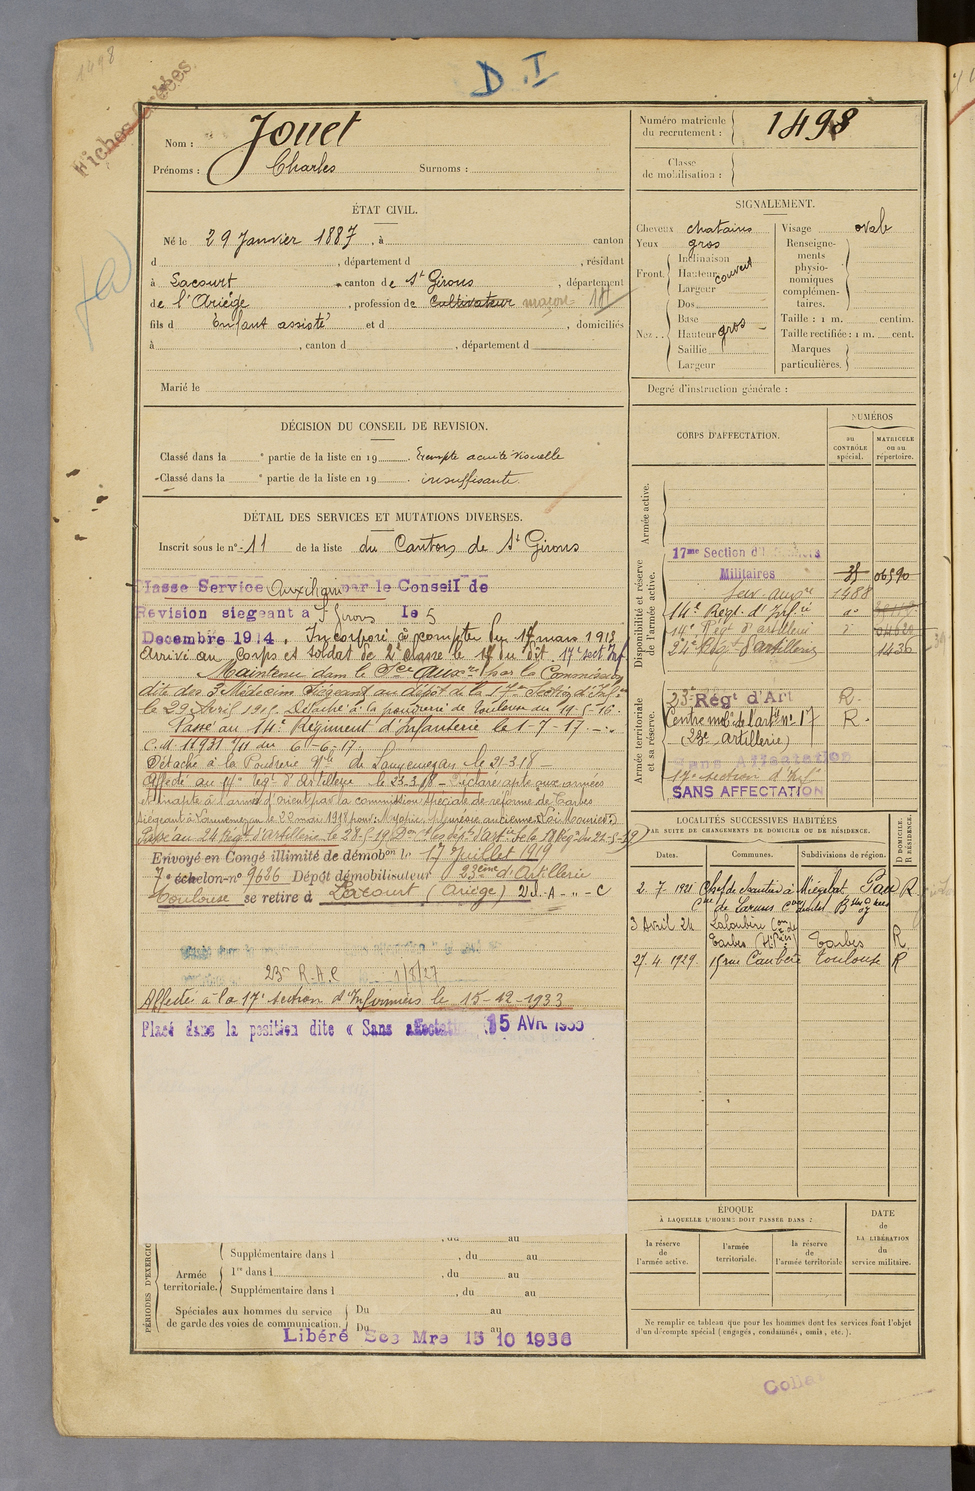 1498
Fiches Créées.
D.I
Nom : Jouet
Prénoms : Charles Surnoms :
Numéro matricule du recrutement : 1498
Classe de mobilisation :
ÉTAT CIVIL.
Né le 29 Janvier 1887, à canton
d , département d , résidant
à Lacourt canton de St Girons , département
de l'Ariège , profession de Cultivateur maçon
fils d Enfant assisté et d , domiciliés
à , canton d , département d
Marié le
SIGNALEMENT.
Cheveux chatains
Yeux gros
Front. Inclinaison
Hauteur couvert
Largeur
Dos
Nez .. Base
Hauteur gros
Saillie
Largeur
Visage ovale
Renseigne-
ments
physio-
nomiques
complémen-
taires.
Taille : 1 m. centim.
Taille rectifiée : 1 m. cent.
Marques
particulières.
Degré d'instruction générale :
DÉCISION DU CONSEIL DE REVISION.
Classé dans la e partie de la liste en 19 . Exempté acuité visuelle
Classé dans la e partie de la liste en 19 . insuffisante.
DÉTAIL DES SERVICES ET MUTATIONS DIVERSES.
Inscrit sous le n° 11 de la liste du Canton de St Girons
Classe Service Auxiliaire par le Conseil de
Revision siegeant à St Girons le 5
Decembre 1914. Incorporé à compter du 17 mars 1915
Arrivé au Corps et soldat de 2e classe le 17 du dit. 17e Sect Inf
Maintenu dans le Sce Auxre par la Commission
dite des 3 Médecins siégeant au dépôt de la 17e Section d'Infres
le 29 Avril 1915. Détaché à la poudrerie de Toulouse du 19-5-16.
Passé au 14e Régiment d'Infanterie le 1-7-17.
C.M. 11931 1/11 du 6-6-17.
Détaché à la Poudrerie Nle de Lannemezan le 21-3-18
Affecté au 14e Regt d'Artillerie le 23-3-18 - Déclaré apte aux armées
et inapte à l'armée d'orient par la commission spéciale de réforme de Tarbes
siégeant à Lannemezan le 28 mai 1918 pour: Myopie, pleurésie ancienne (Loi Mourier)
Passé au 24 Régt d'artillerie le 28-5-19
Envoyé en Congé illimité de démobon le 17 Juillet 1919
7e échelon-n° 9626 Dépôt démobilisateur 23ème d'Artillerie
Toulouse se retire à Lacourt (Ariège)
23e R.A.C 1/5/27
Affecté à la 17e section d'Infirmiers le 15-12-1933
Placé dans la position dite « Sans affectation 15 AVR. 1935
CORPS D'AFFECTATION.
NUMÉROS
au CONTRÔLE spécial.
MATRICULE ou au répertoire.
Armée active.
Disponibilité et réserve de l'armée active.
17me Section d'Infirmiers
Militaires 35 06590
Serv. auxre 1488
14e Régt. d'Infrie
14e Régt d'artillerie
24e Régt d'artillerie 1436
Armée territoriale et sa réserve.
23e Régt d'Art R.
Centre mobre de l'artie n° 17 R.
(23e artillerie)
Sans Affectation
17e section d'Infres
SANS AFFECTATION
LOCALITÉS SUCCESSIVES HABITÉES
PAR SUITE DE CHANGEMENTS DE DOMICILE OU DE RÉSIDENCE.
Dates. Communes. Subdivisions de région. D DOMICILE. R RÉSIDENCE.
2. 7. 1921 Chef de chantier à Miégebat Pau R
Cne de Laruns
3 Avril 24 Laloubère Con de
Tarbes (Htes Pées) Tarbes R
27. 4. 1929. 15 rue Caubère Toulouse R
ÉPOQUE
À LAQUELLE L'HOMME DOIT PASSER DANS :
la réserve de l'armée active.
l'armée territoriale.
la réserve de l'armée territoriale
DATE de LA LIBÉRATION du service militaire.
Ne remplir ce tableau que pour les hommes dont les services font l'objet
d'un décompte spécial (engagés, condamnés, omis, etc.).
PÉRIODES D'EXERCIC
Armée territoriale.
Supplémentaire dans l , du au
1re dans l , du au
Supplémentaire dans l , du au
Spéciales aux hommes du service
de garde des voies de communication.
Du au
Du au
Libéré Ses Mre 15 10 1936